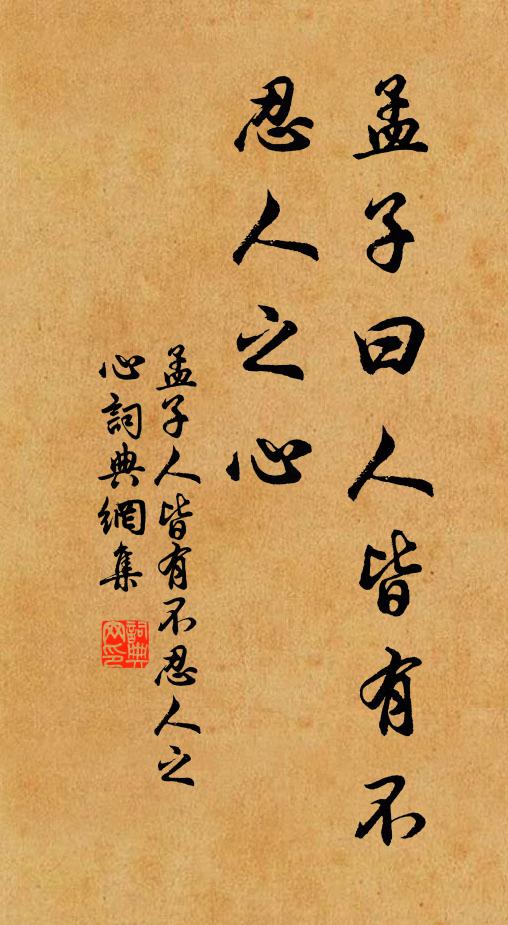 孟子曰人皆有不
忍人之心
孟子人皆有不忍人之
心詞典網集
詞典
网印